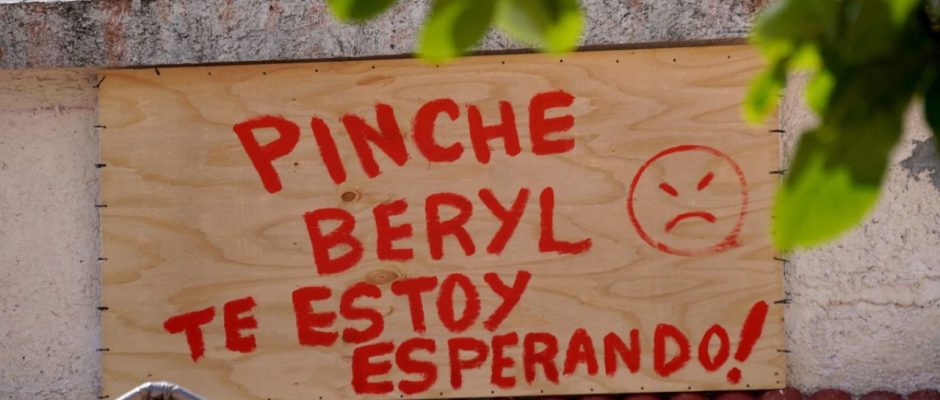 PINCHE
BERYL
TE ESTOY
ESPERANDO!